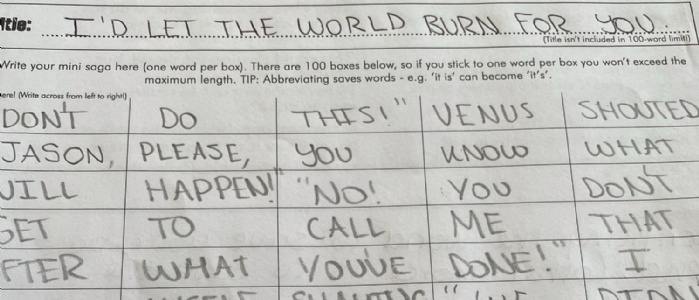 Title: I'D LET THE WORLD BURN FOR YOU.
(Title isn't included in 100-word limit!)
Write your mini saga here (one word per box). There are 100 boxes below, so if you stick to one word per box you won't exceed the
maximum length. TIP: Abbreviating saves words - e.g. 'it is' can become 'it's'.
here! (Write across from left to right!)
DON'T DO THIS!" VENUS SHOUTED
JASON, PLEASE, YOU KNOW WHAT
WILL HAPPEN!" "NO! YOU DON'T
GET TO CALL ME THAT
AFTER WHAT YOU'VE DONE!" I